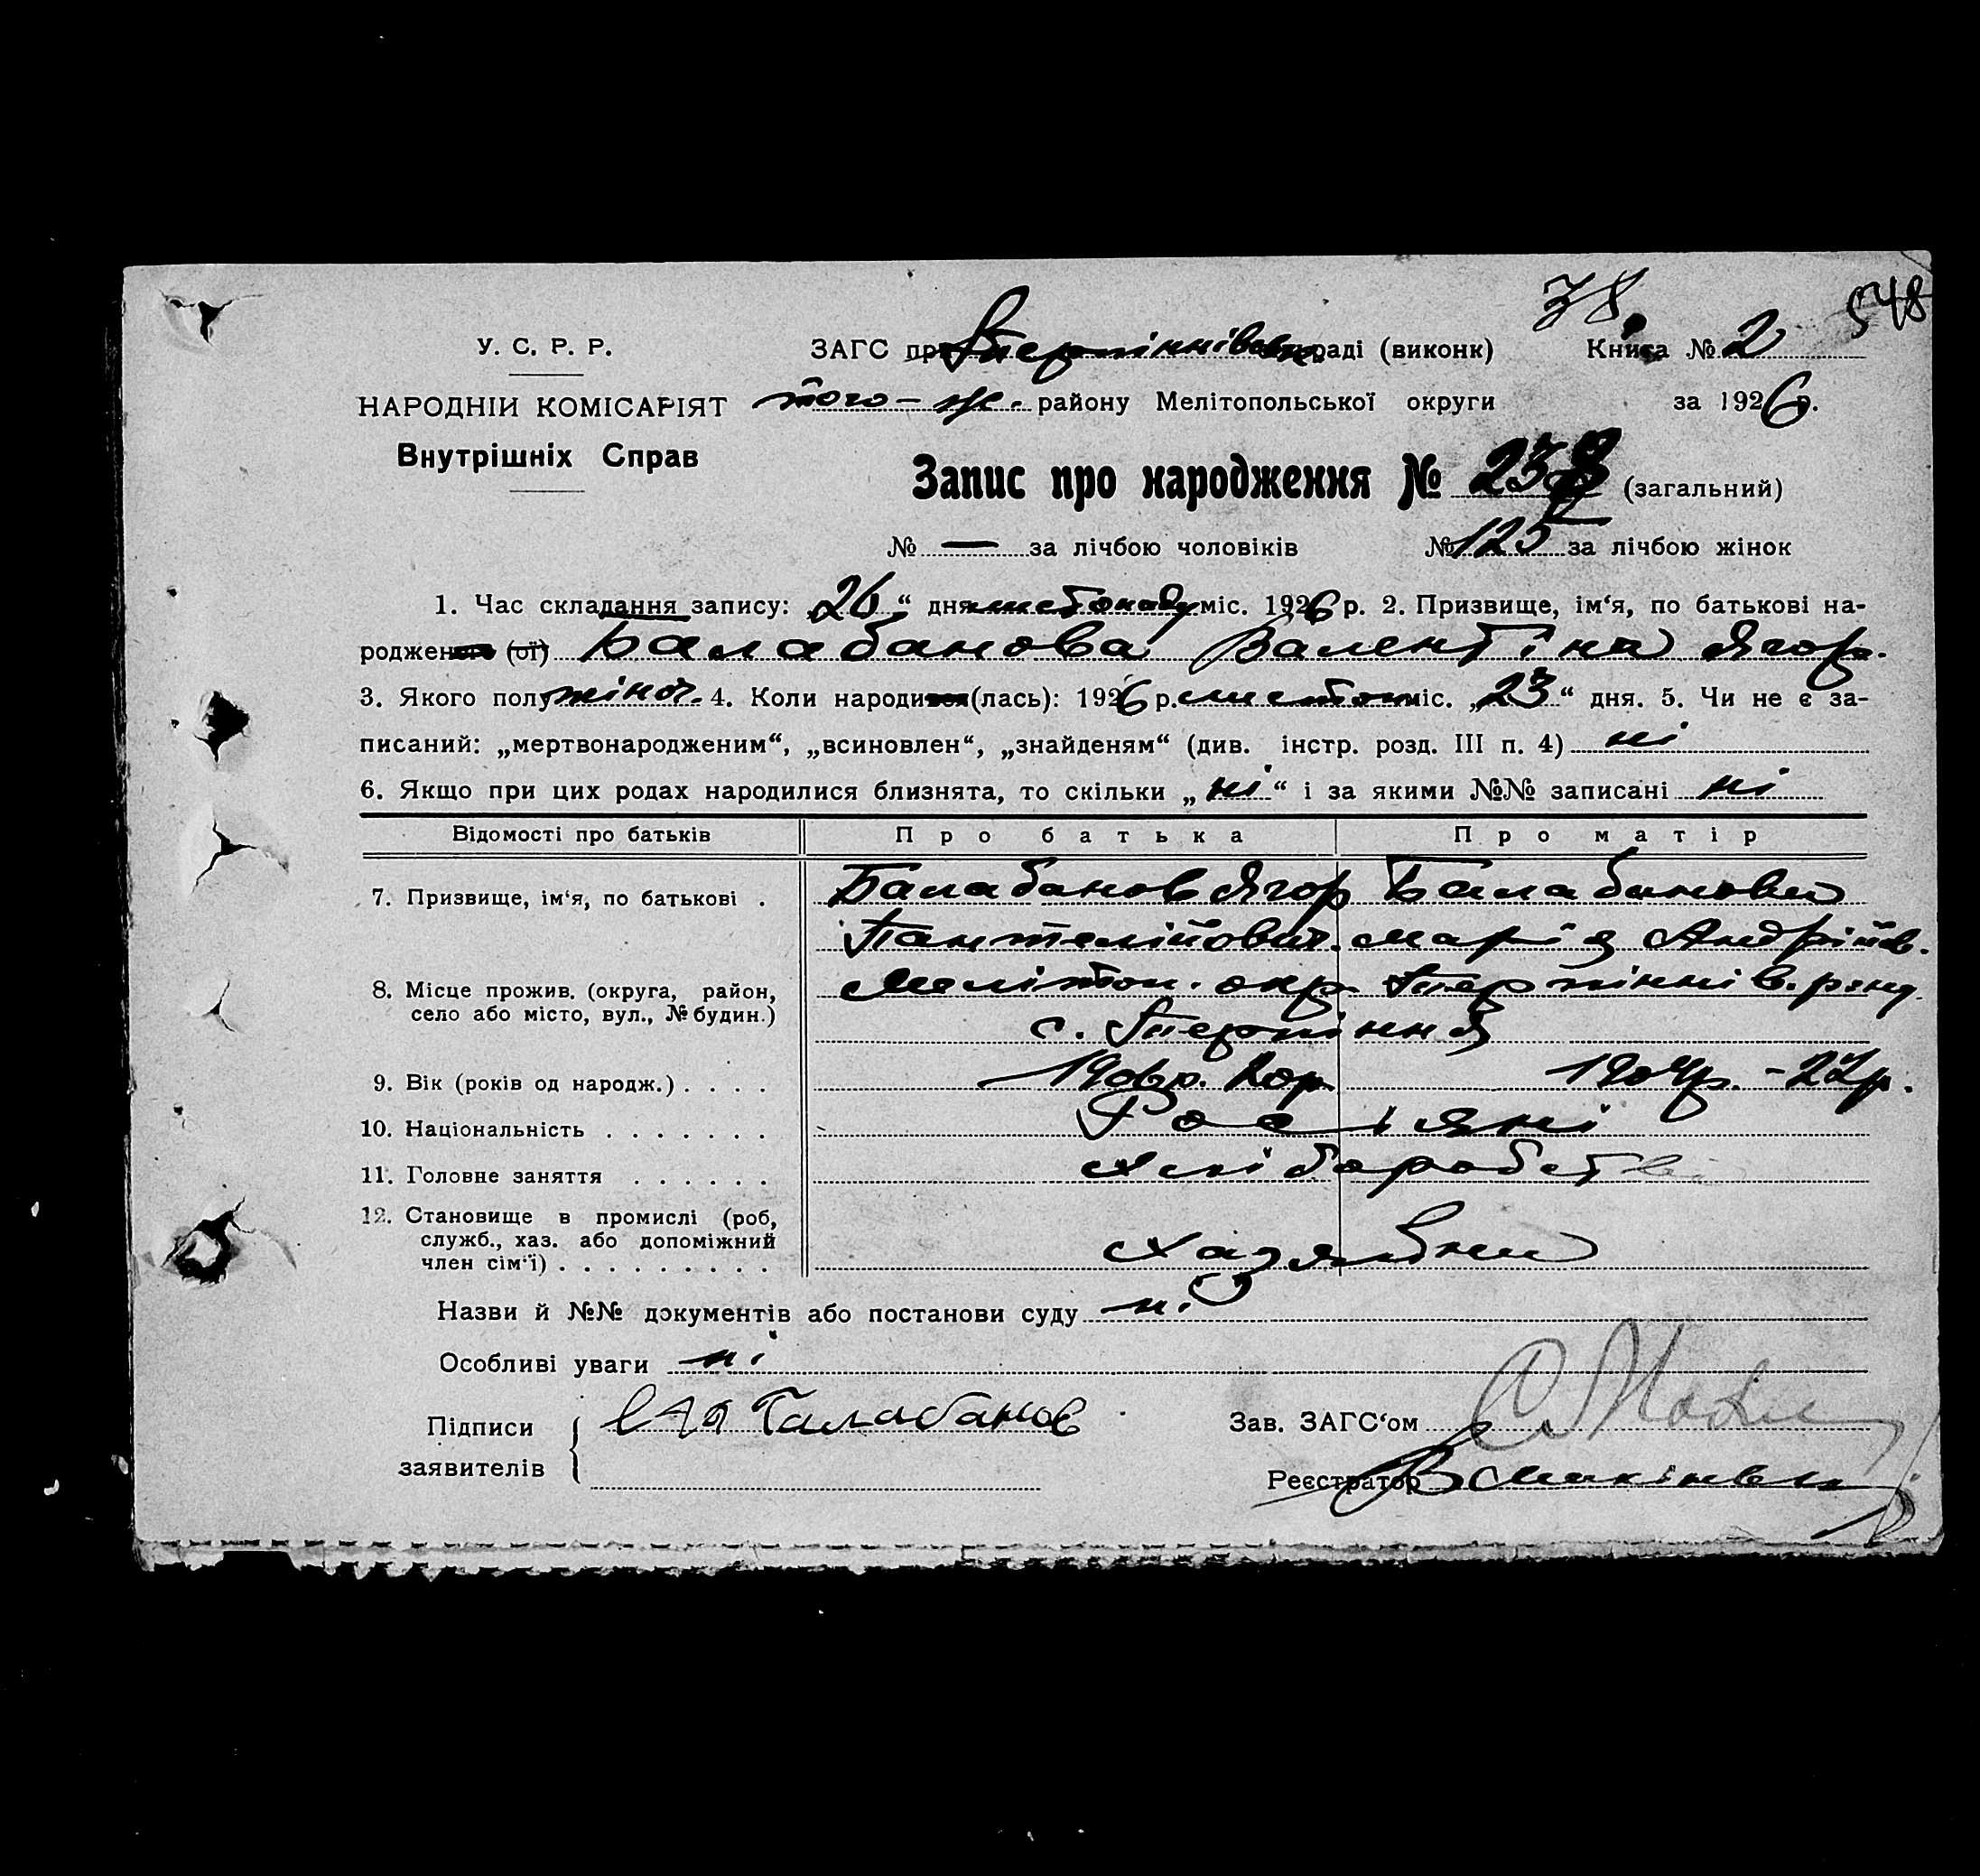 78.
548
У. С. Р. Р.
ЗАГС при Терпіннівськ раді (виконк) Книга № 2
НАРОДНІЙ КОМІСАРІЯТ того-ж. району Мелітопольської округи за 1926 р.
Внутрішніх Справ
Запис про народження № 238 (загальний)
№ — за лічбою чоловіків № 125 за лічбою жінок
1. Час складання запису: 26 “ дня листопаду міс. 1926 р. 2. Призвище, ім‘я, по батькові на-
родженого (ої) Балабанова Валентіна Ягор.
3. Якого полу жіноч. 4. Коли народився (лась): 1926 р. листоп міс. „23“ дня. 5. Чи не є за-
писаний: „мертвонародженим“, „всиновлен“, „знайденям“ (див. інстр. розд. III п. 4) ні
6. Якщо при цих родах народилися близнята, то скільки „ні“ і за якими №№ записані ні
Відомості про батьків Про батька Про матір
7. Призвище, ім‘я, по батькові . Балабанов Ягор Балабанова
Пантелійович. Марія Андріїв.
8. Місце прожив. (округа, район, Мелітоп. окр. Терпіннів. району
село або місто, вул., № будин.) с. Терпіння
9. Вік (років од народж.) . . . . 1906р. 20р. 1904р. - 22р.
10. Національність . . . . . . . Росіяні
11. Головне заняття . . . . . . Хліборобств
12. Становище в промислі (роб,
служб., хаз. або допоміжний
член сім‘ї) . . . . . . . . . Хазяївни
Назви й №№ документів або постанови суду ні
Особливі уваги ні
Підписи Балабанов Зав. ЗАГС‘ом
заявителів Реєстратор